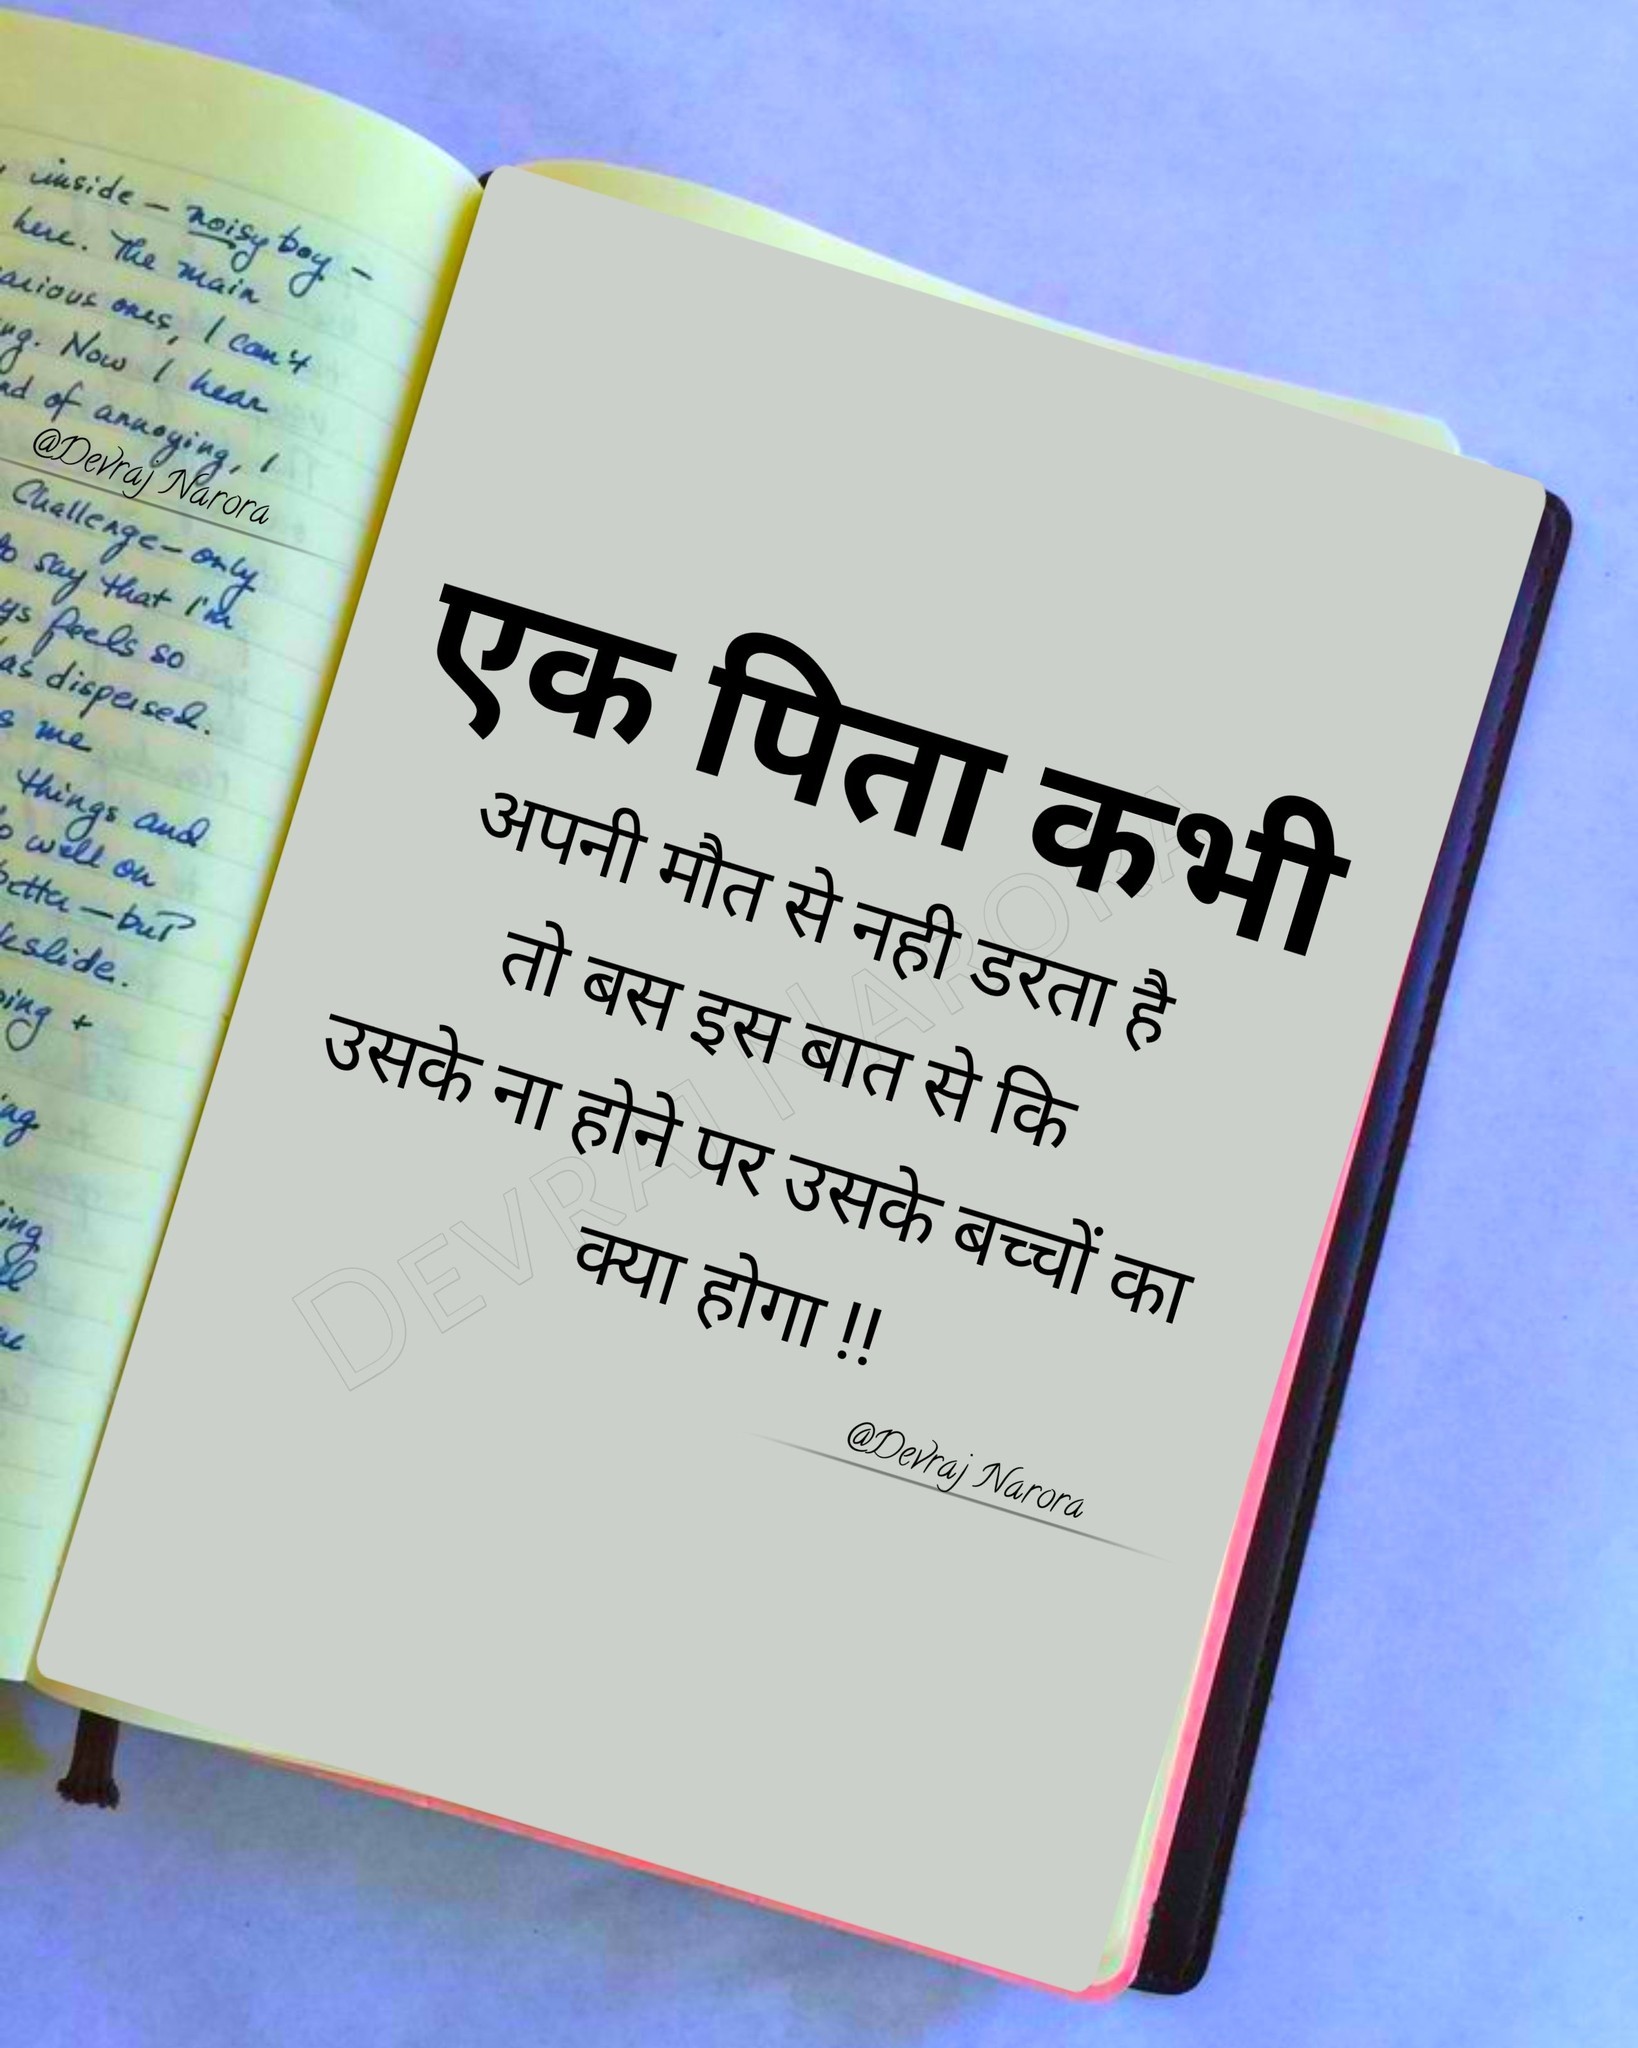 inside – noisy boy –
here. The main
ones, I can't
Now I hear
of annoying, I
@Devraj Narora
Challenge – only
to say that I'm
feels so
as dispersed.
me
things and
well on
better – but
+
एक पिता कभी
अपनी मौत से नही डरता है
तो बस इस बात से कि
उसके ना होने पर उसके बच्चों का
क्या होगा !!
@Devraj Narora
DEVRAJ NARORA